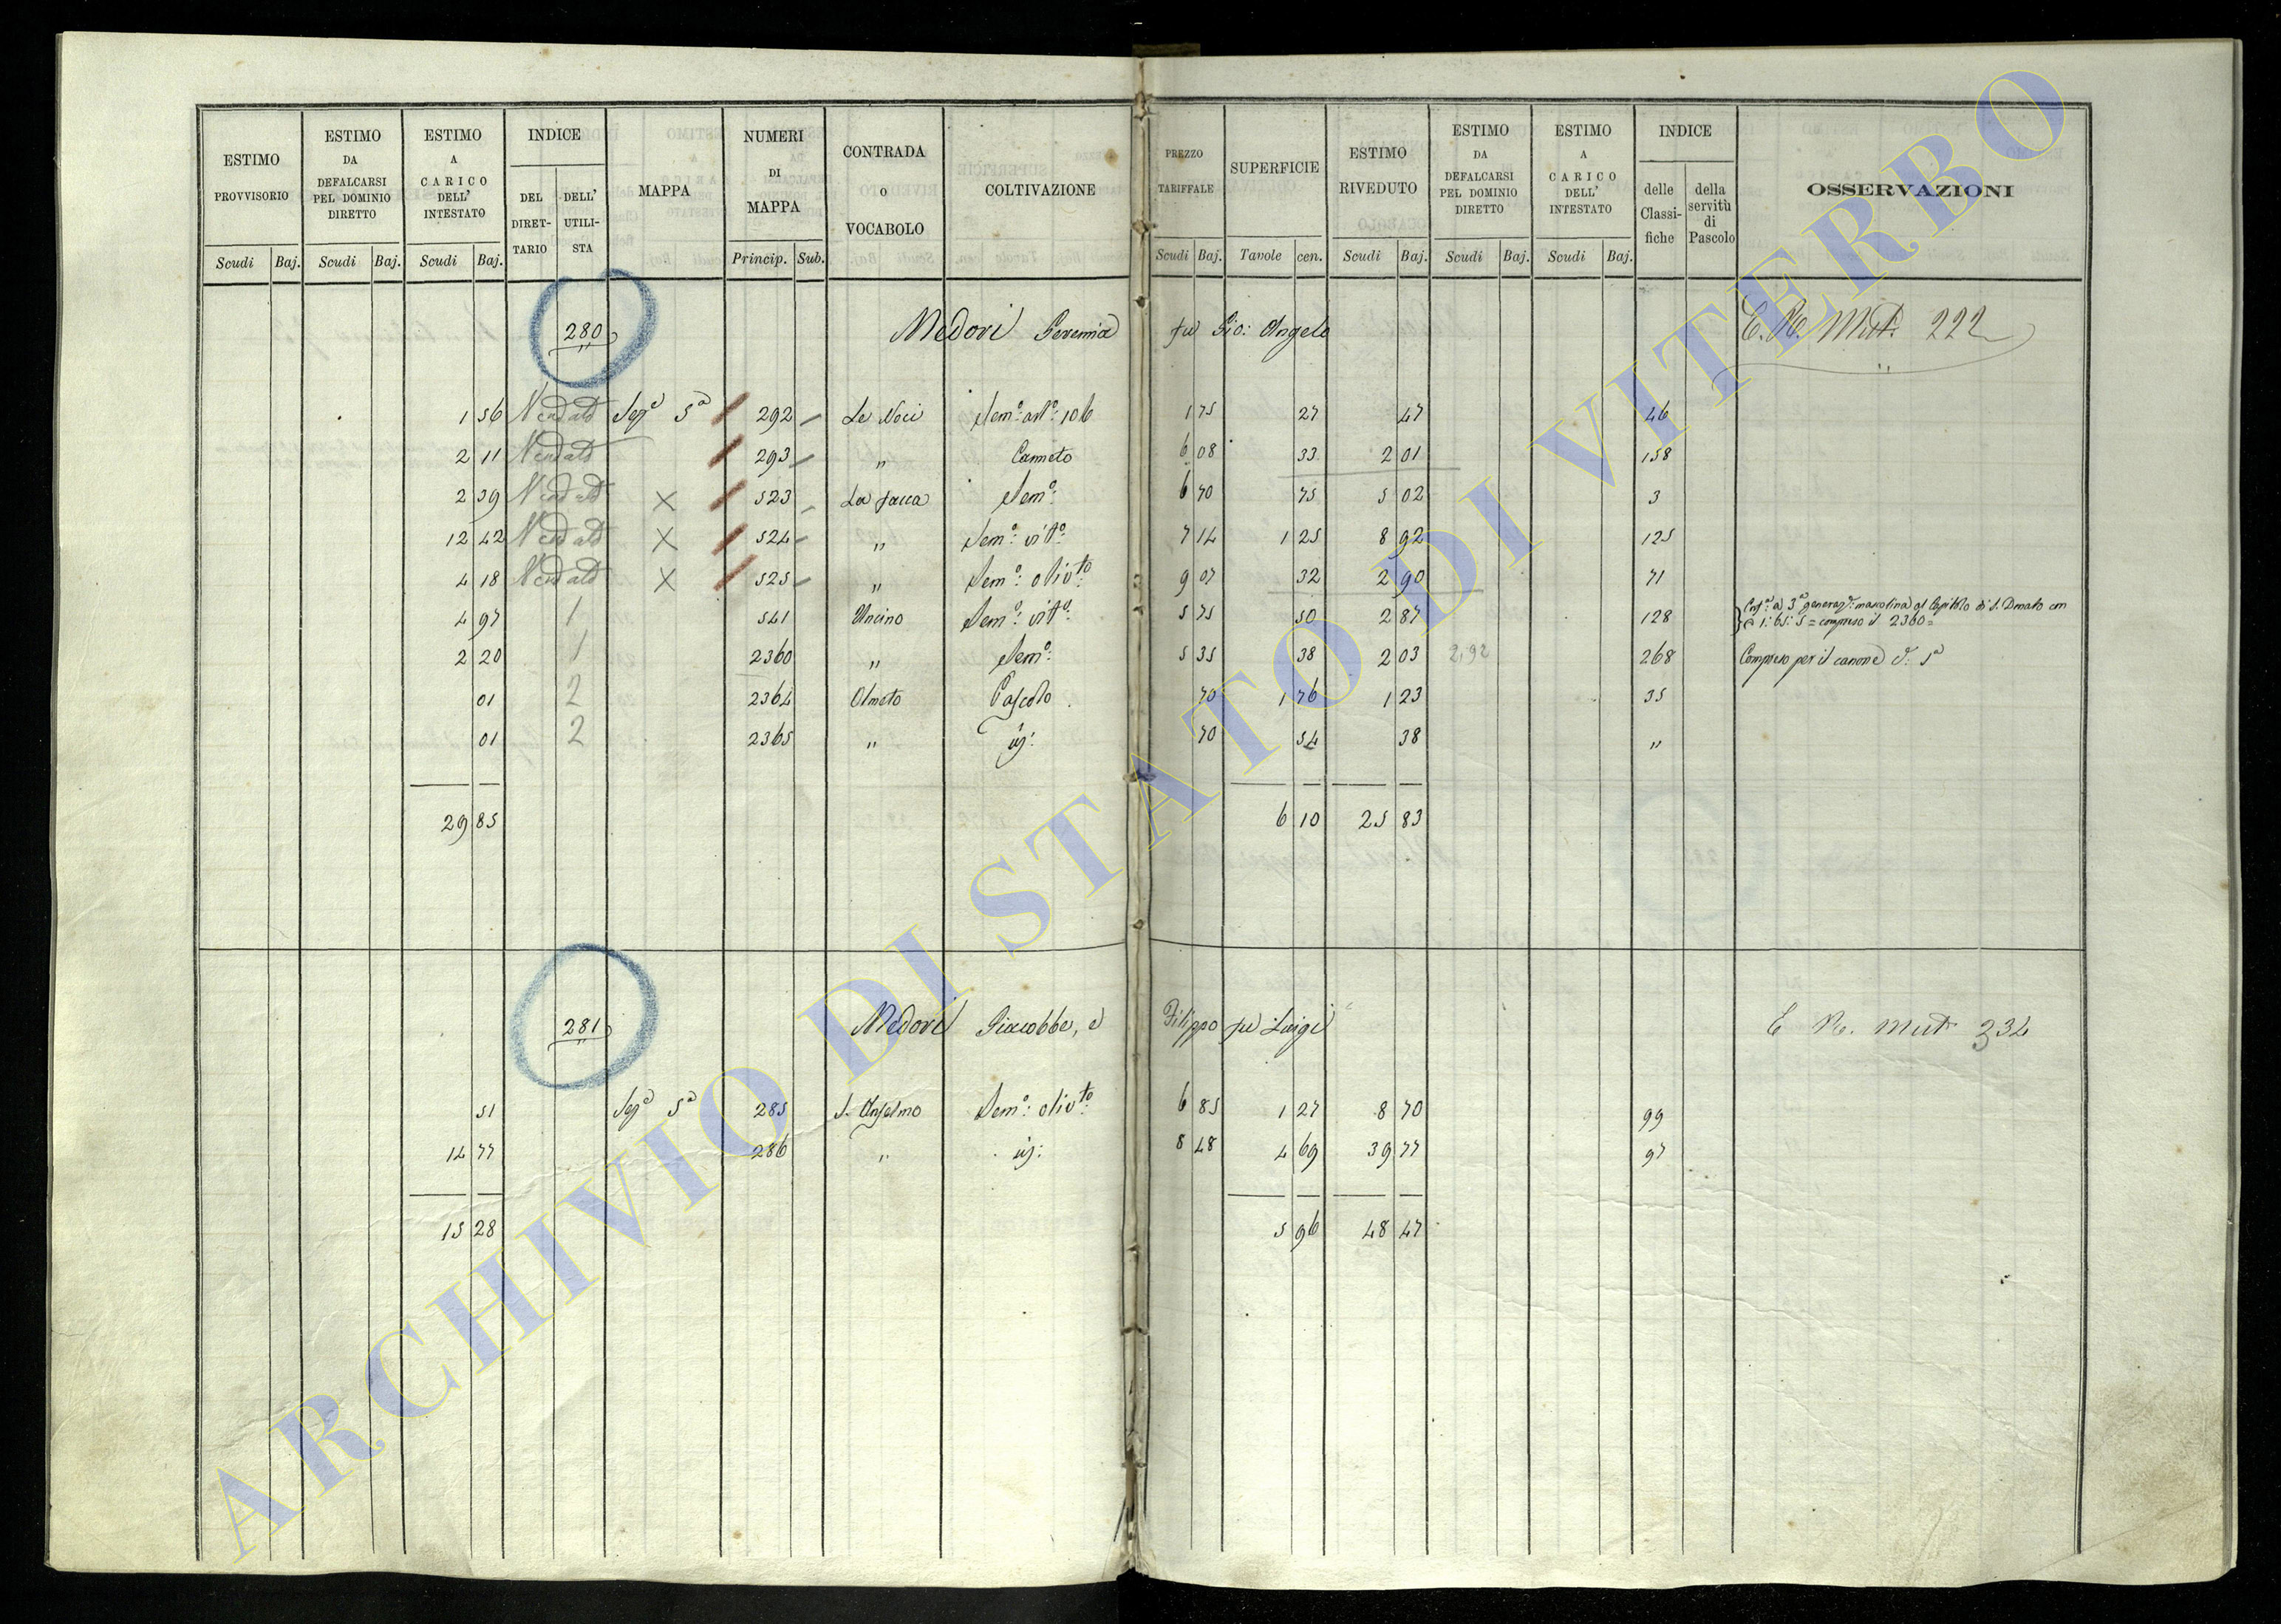 ESTIMO PROVVISORIO
ESTIMO DA DEFALCARSI PEL DOMINIO DIRETTO
ESTIMO A CARICO DELL' INTESTATO
INDICE
DEL DIRETTARIO
DELL' UTILISTA
MAPPA
NUMERI DI MAPPA
CONTRADA o VOCABOLO
COLTIVAZIONE
PREZZO TARIFFALE
SUPERFICIE
ESTIMO RIVEDUTO
ESTIMO DA DEFALCARSI PEL DOMINIO DIRETTO
ESTIMO A CARICO DELL' INTESTATO
INDICE
delle Classifiche
della servitù di Pascolo
OSSERVAZIONI
Scudi Baj. Scudi Baj. Scudi Baj. Princip. Sub. Scudi Baj. Tavole cen. Scudi Baj. Scudi Baj. Scudi Baj.
280 Medori Geremia fu Gio: Angelo E. R. Mut. 222
1 56 Vend Sez.e 5a 292 Le Noci Sem.o 106 1 75 27 47 46
2 11 Vend 293 " Canneto 6 08 33 2 01 158
2 39 Vend X 523 La 6 70 75 5 02 3
Sem.o:
12 42 Vend X 524 " Sem.o: vit.o: 7 14 1 25 8 92 125
4 18 Vend X 525 " Sem.o: oliv.to 9 07 32 2 90 71
4 97 1 541 Uncino Sem.o: vit.o: 5 75 50 2 87 128 a 3a mascolina al Capitolo di S. Donato con
1: 65: 5 = compreso il 2360 =
2 20 1 2360 " Sem.o: 5 35 38 2 03 2,92 268 Compreso per il canone 5a
01 2 2364 Olmeto Pascolo 70 1 76 1 23 35
01 2 2365 " id: 70 54 38 "
29 85 6 10 25 83
281 Medori Giacobbe, e Filippo fu Luigi E R. Mut 232
51 Sez.e 5a 285 S. Anselmo Sem.o: oliv.to 6 85 1 27 8 70 99
14 77 286 " id: 8 48 4 69 39 77 97
15 28 5 96 48 47
ARCHIVIO DI STATO DI VITERBO